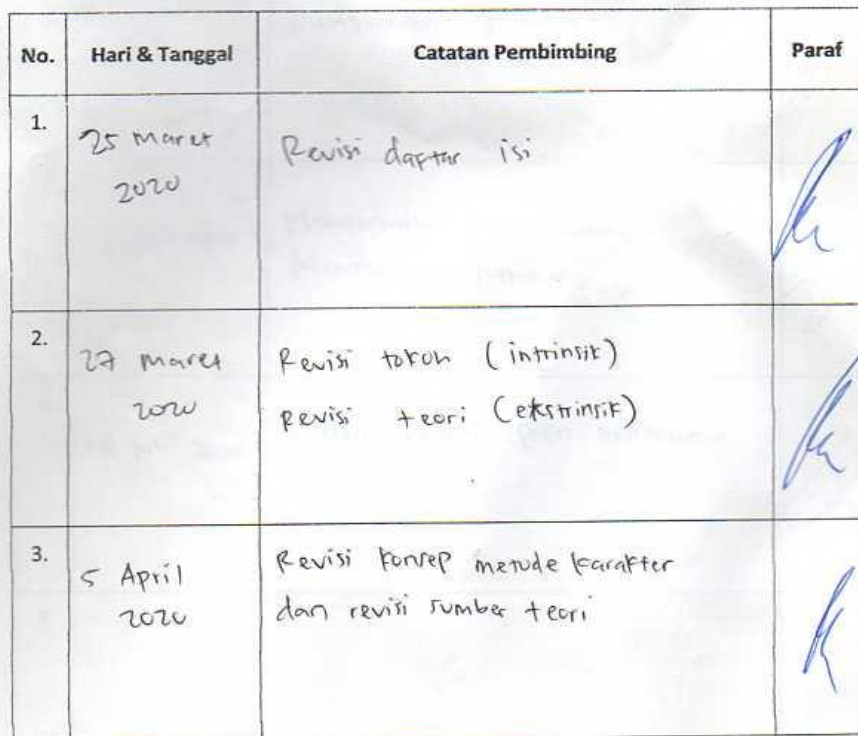 No. Hari & Tanggal Catatan Pembimbing Paraf
1. 25 Maret 2020 Revisi daftar isi
2. 27 Maret 2020 Revisi tokoh (intrinsik)
Revisi teori (ekstrinsik)
3. 5 April 2020 Revisi konsep metode karakter
dan revisi sumber teori